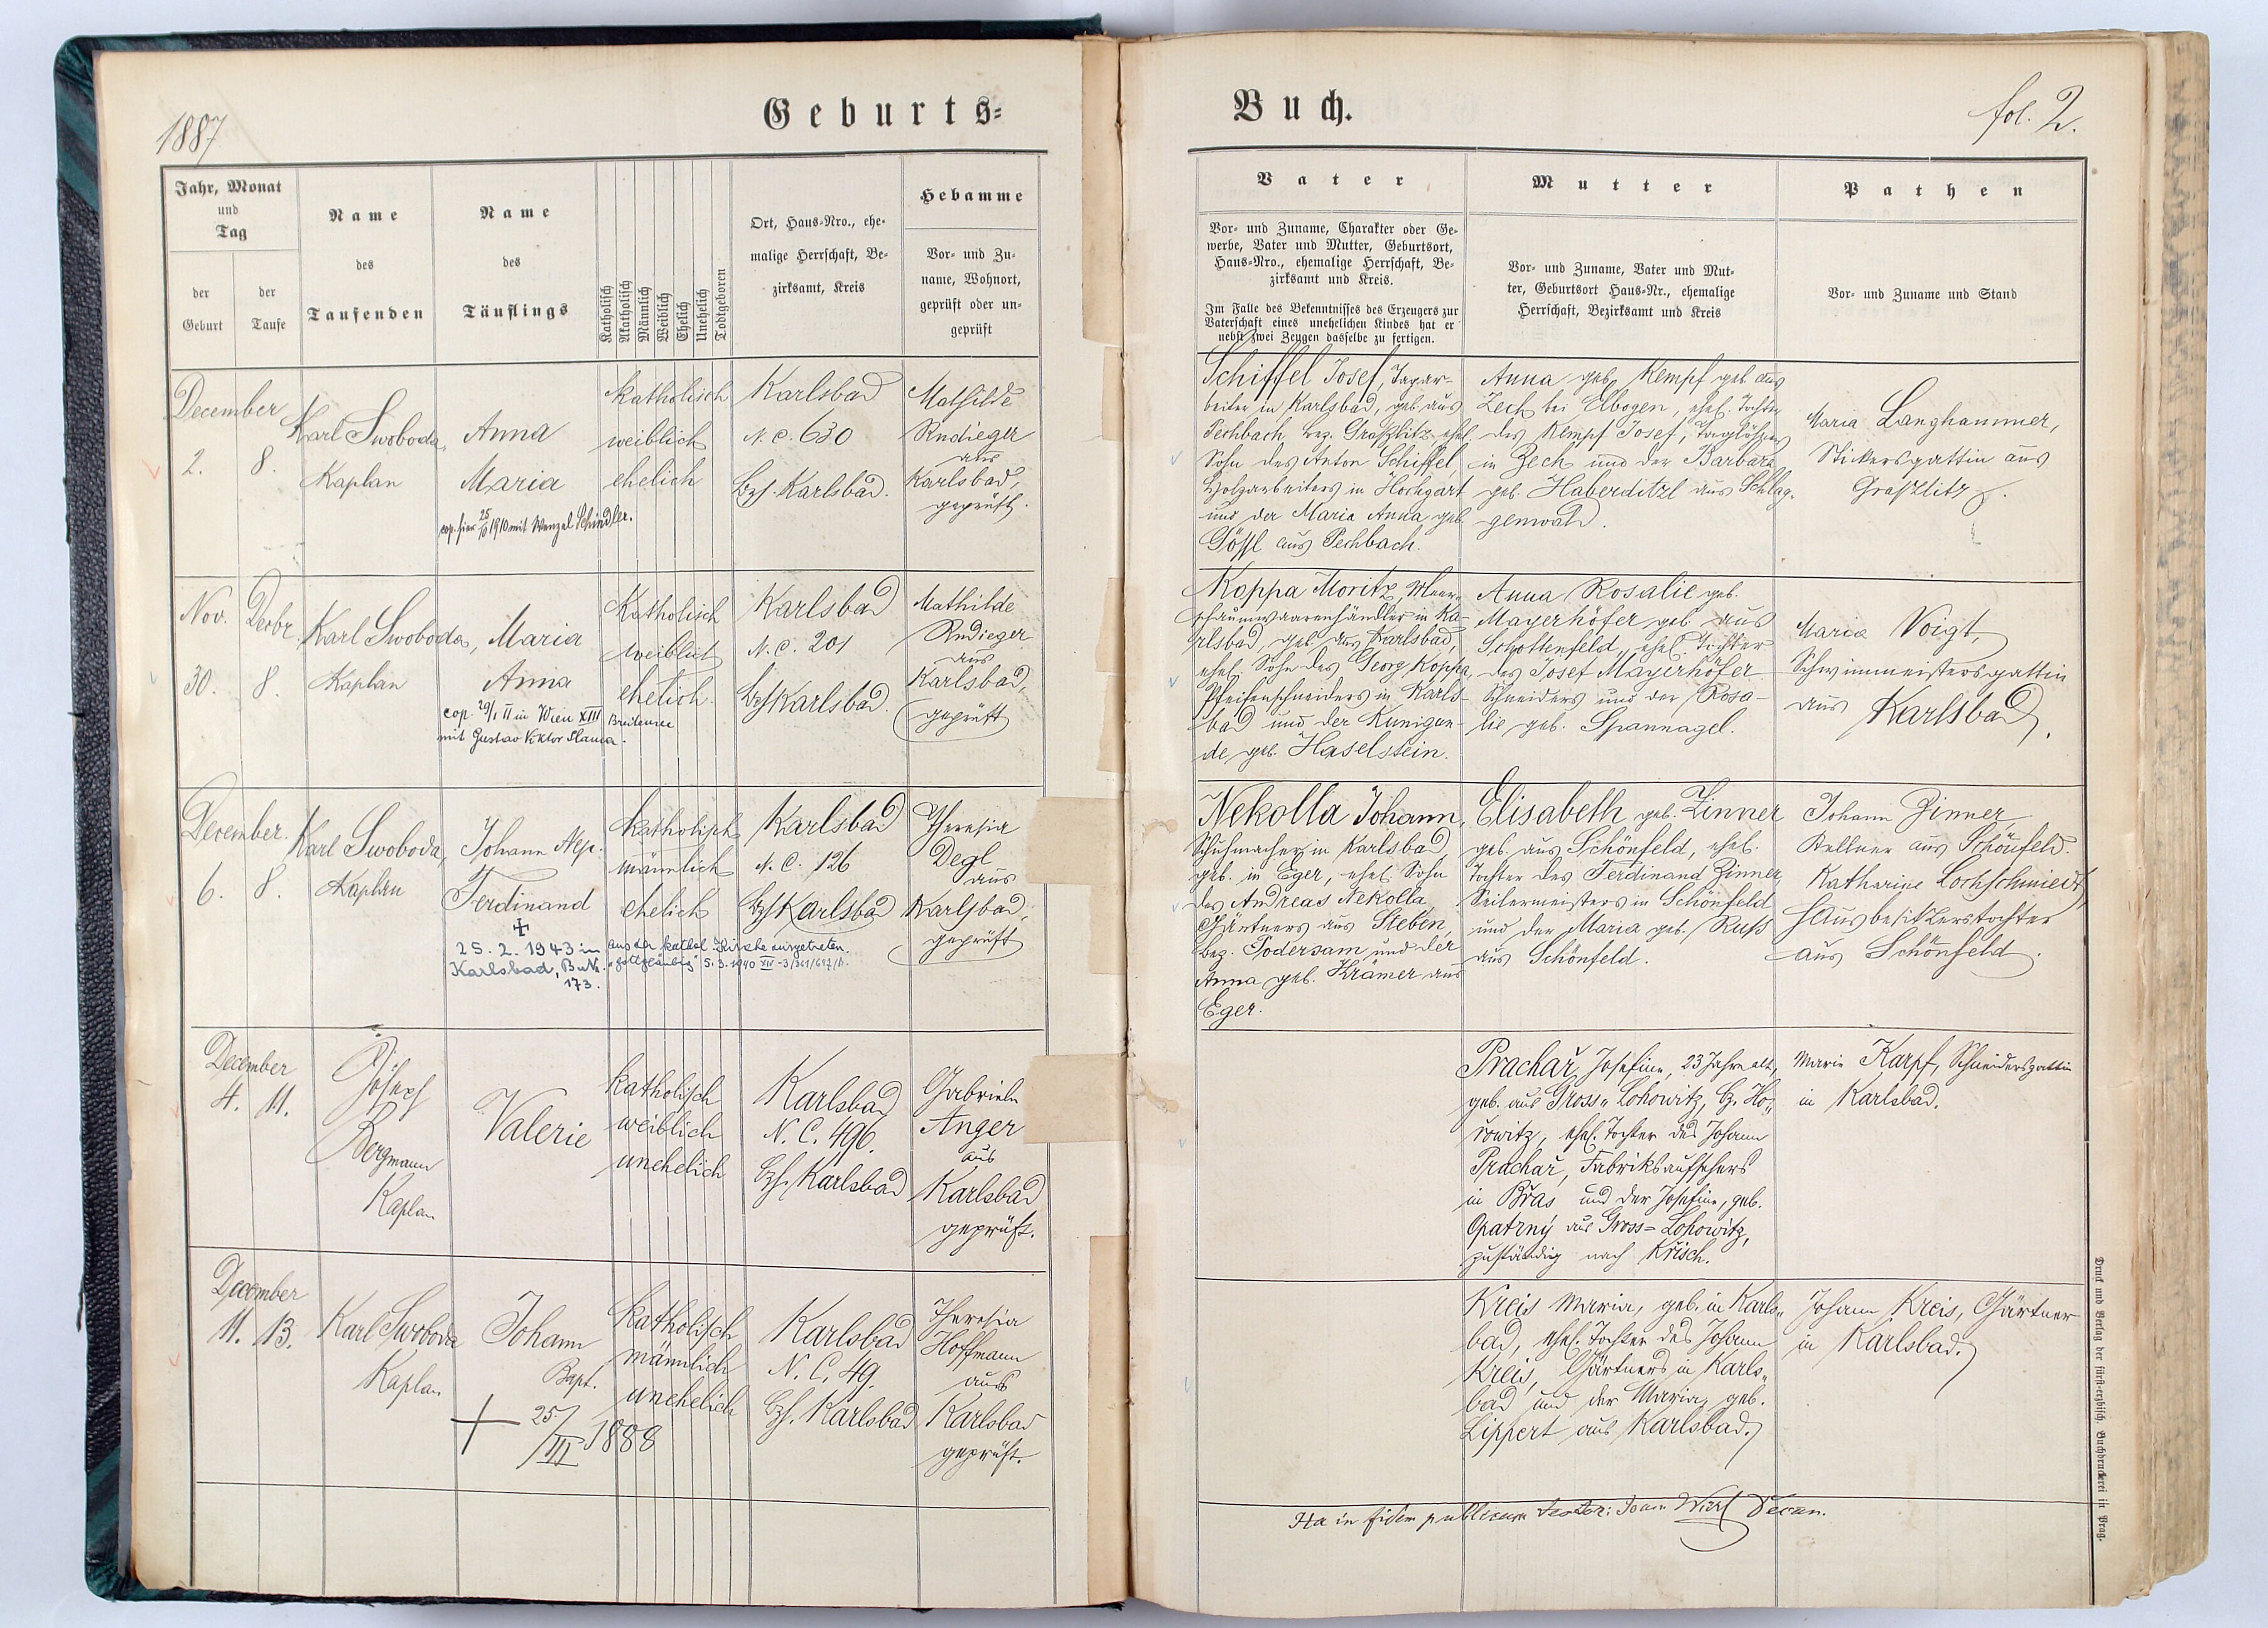 1887
Geburts-
Jahr, Monat
und
Tag
der
Geburt
der
Taufe
Name
des
Taufenden
Name
des
Täuflings
Katholisch
Akatholisch
Männlich
Weiblich
Ehelich
Unehelich
Todtgeboren
Ort, Haus-Nro., ehe-
malige Herrschaft, Be-
zirksamt, Kreis
Hebamme
Vor- und Zu-
name, Wohnort,
geprüft oder un-
geprüft
December
2. 8.
Karl Swoboda,
Kaplan
Anna
Maria
cop. hier 25 1910 mit Wenzel Schindler.
katholisch
weiblich
ehelich
Karlsbad
N. C. 630
Bzh. Karlsbad.
Mathilde
Rudieger
aus
Karlsbad,
geprüft.
Nov. Decbr.
30. 8.
Karl Swoboda,
Kaplan
Maria
Anna
cop. 29/I II in Wien XIII Breitensee
mit Gustav Viktor Slama.
Katholisch
weiblich
ehelich
Karlsbad
N. C. 201
Bzh Karlsbad.
Mathilde
Rudieger
aus
Karlsbad,
geprüft
December.
6. 8.
Karl Swoboda,
Kaplan
Johann Nep.
Ferdinand
+
25. 2. 1943 in
Karlsbad, B.u.N.
173.
katholisch
männlich
ehelich
aus der kathol. Kirche ausgetreten.
"gottgläubig" 5. 3. 1940 XIV-3/361/692/
Karlsbad
N. C. 126
Bzh Karlsbad
Theresia
Degl
aus
Karlsbad,
geprüft
December
4. 11.
Josef
Bergmann
Kaplan
Valerie
katholisch
weiblich
unehelich
Karlsbad
N. C. 496.
Bzh. Karlsbad
Gabriele
Anger
aus
Karlsbad
geprüft.
December
11. 13.
Karl Swoboda
Kaplan
Johann
Bapt.
+ 25/III 1888
katholisch
männlich
unehelich
Karlsbad
N. C. 49.
Bzh. Karlsbad
Theresia
Hoffmann
aus
Karlsbad
geprüft.
Buch.
fol. 2.
Vater
Vor- und Zuname, Charakter oder Ge-
werbe, Vater und Mutter, Geburtsort,
Haus-Nro., ehemalige Herrschaft, Be-
zirksamt und Kreis.
Im Falle des Bekenntnisses des Erzeugers zur
Vaterschaft eines unehelichen Kindes hat er
nebst zwei Zeugen dasselbe zu fertigen.
Mutter
Vor- und Zuname, Vater und Mut-
ter, Geburtsort Haus-Nr., ehemalige
Herrschaft, Bezirksamt und Kreis
Pathen
Vor- und Zuname und Stand
Schiffel Josef, Tagar-
beiter in Karlsbad, geb. aus
Pechbach, Bez. Graßlitz, ehel.
Sohn des Anton Schiffel,
Holzarbeiters in Hochgart
und der Maria Anna geb.
Gößl aus Pechbach.
Anna geb. Kempf geb. aus
Zech bei Elbogen, ehel. Tochter
des Kempf Josef, Taglöhners
in Zech und der Barbara
geb. Haberditzl aus Schlag-
genwald.
Maria Langhammer,
Stickersgattin aus
Graßlitz.
Koppa Moritz, Meer-
schaumwaarenhändler in Ka-
rlsbad, geb. aus Karlsbad,
ehel. Sohn des Georg Koppa,
Pfeifenschneiders in Karls-
bad und der Kunigun-
de geb. Haselstein.
Anna Rosalie geb.
Mayerhöfer geb. aus
Schottenfeld, ehel. Tochter
des Josef Mayerhöfer
Schneiders und der Rosa-
lie geb. Spannagel.
Maria Voigt,
Schwimmeistersgattin
aus Karlsbad.
Nekolla Johann,
Schuhmacher in Karlsbad,
geb. in Eger, ehel. Sohn
des Andreas Nekolla,
Gärtners aus Steben,
Bez. Podersam und der
Anna geb. Krämer aus
Eger.
Elisabeth geb. Zinner
geb. aus Schönfeld, ehel.
Tochter des Ferdinand Zinner,
Seilermeisters in Schönfeld
und der Maria geb. Russ
aus Schönfeld.
Johann Zinner
Kellner aus Schönfeld.
Katharine Lochschmiedt,
Hausbesitzerstochter
aus Schönfeld.
Prachař Josefine, 23 Jahre alt,
geb. aus Gross-Lohowitz, Bz. Ho-
rowitz, ehel. Tochter des Johann
Prachař, Fabriksaufsehers
in Břas und der Josefine, geb.
Opatrný aus Gross-Lohowitz,
zuständig nach Křisch.
Marie Karpf, Schneidersgattin
in Karlsbad.
Kreis Maria, geb. in Karls-
bad, ehel. Tochter des Johann
Kreis, Gärtners in Karls-
bad und der Maria, geb.
Lippert aus Karlsbad.
Johann Kreis, Gärtner
in Karlsbad.
Ita in fidem publicam testor: Decan.
Druck und Verlag der fürst-erzbisch. Buchdruckerei in Prag.